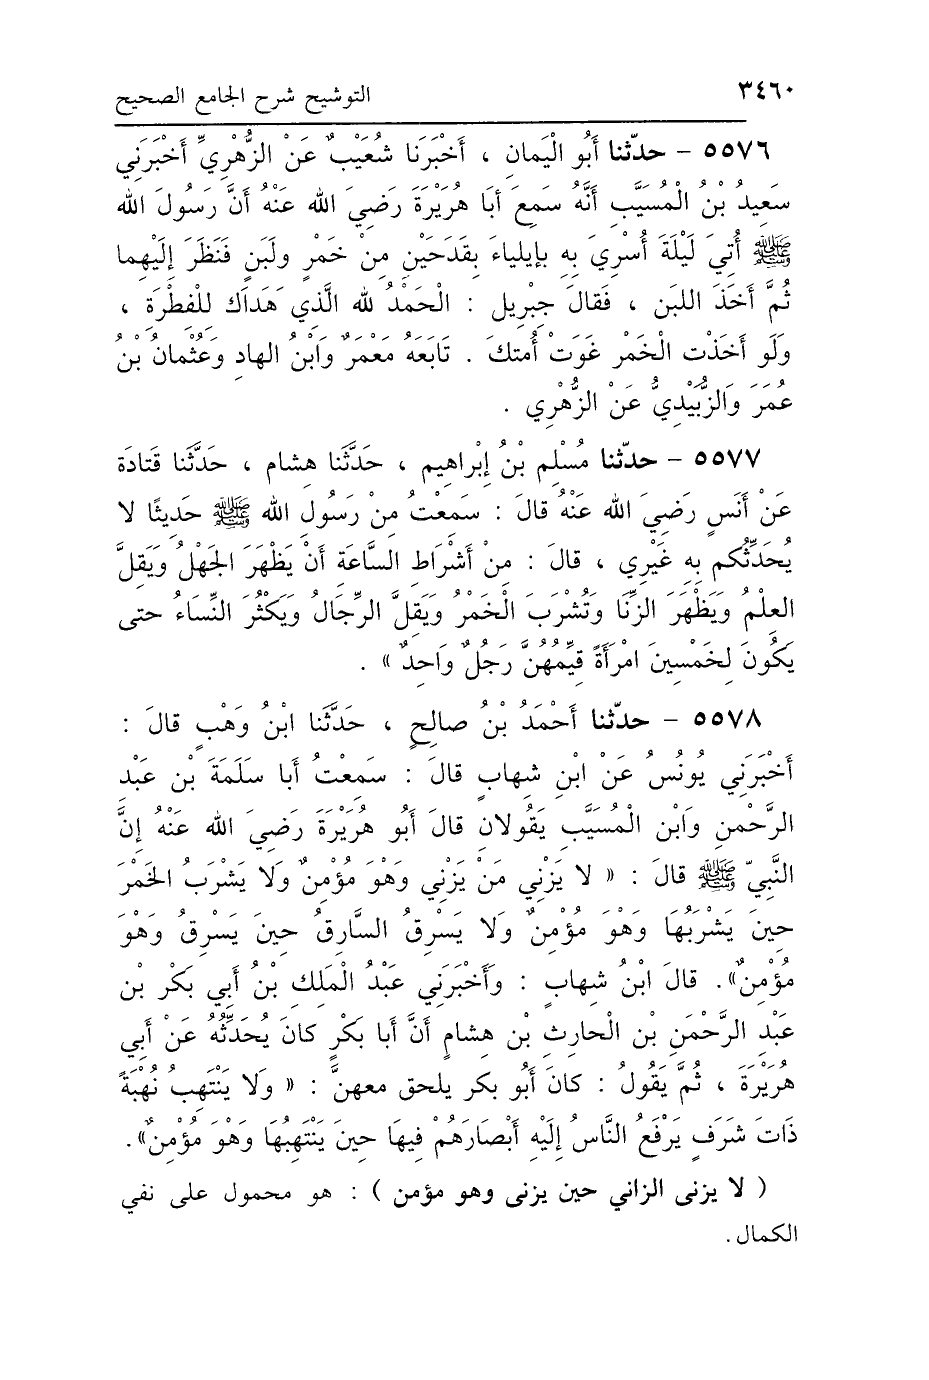 ٣٤٦٠ التوشيح شرح الجامع الصحيح
٥٥٧٦ - حدّثنا أَبُو الْيَمانِ ، أَخْبَرَنَا شُعَيْبٌ عَنْ الزُّهْرِيِّ أَخْبَرَنِي
سَعِيدُ بْنُ الْمُسَيَّبِ أَنَّهُ سَمِعَ أبَا هُرَيْرَةَ رَضِيَ الله عَنْهُ أَنَّ رَسُولَ الله
ﷺ أُتِيَ لَيْلَةَ أُسْرِيَ بِهِ بإيلياءَ بِقَدَحَيْنِ مِنْ خَمْرٍ ولَبَنٍ فَنَظَرَ إِلَيْهِما
ثُمَّ أَخَذَ اللبَن ، فَقالَ جِبْرِيل : الْحَمْدُ لله الَّذِي هَدَاكَ لِلْفِطْرَةِ ،
وَلَو أَخَذْتَ الْخَمْرَ غَوَتْ أُمتكَ . تَابَعَهُ مَعْمَرٌ وَابْنُ الهادِ وَعُثْمانُ بْنُ
عُمَرَ وَالزُّبَيْدِيُّ عَنْ الزُّهْرِي .
٥٥٧٧ - حدّثنا مُسْلِم بْنُ إِبْراهِيم ، حَدَّثَنا هِشام ، حَدَّثَنا قَتادَة
عَنْ أَنَسٍ رَضِيَ الله عَنْهُ قالَ : سَمِعْتُ مِنْ رَسُولِ الله ﷺ حَدِيثًا لا
يُحَدِّثُكم بِهِ غَيْرِي ، قالَ : مِنْ أَشْرَاطِ السَّاعَةِ أَنْ يَظْهَرَ الجَهْلُ وَيَقِلَّ
العِلْمُ وَيَظْهَرَ الزِّنَا وَتُشْرَبَ الْخَمْرُ وَيَقِلَّ الرِّجَالُ وَيَكْثُرَ النِّسَاءُ حتى
يَكُونَ لِخَمْسِينَ امْرَأَةً قَيِّمُهُنَّ رَجُلٌ وَاحِدٌ » .
٥٥٧٨ - حدّثنا أَحْمَدُ بْنُ صالِحٍ ، حَدَّثَنا ابْنُ وَهْبٍ قالَ :
أَخْبَرَنِي يُونُسُ عَنْ ابْنِ شِهابٍ قالَ : سَمِعْتُ أَبا سَلَمَةَ بْنِ عَبْدِ
الرَّحْمنِ وَابْنِ الْمُسَيَّبِ يَقُولانِ قالَ أَبُو هُرَيْرَةَ رَضِيَ الله عَنْهُ إنَّ
النَّبِيّ ﷺ قالَ : « لا يَزْنِي مَنْ يَزْنِي وَهْوَ مُؤْمِنٌ وَلَا يَشْرَبُ الخَمْرَ
حِينَ يَشْرَبُهَا وَهْوَ مُؤْمِنٌ وَلا يَسْرِقُ السَّارِقُ حِينَ يَسْرِقُ وَهْوَ
مُؤْمِنٌ». قالَ ابْنُ شِهابٍ : وَأَخْبَرَنِي عَبْدُ الْمَلِكِ بْنُ أَبِي بَكْرِ بْنِ
عَبْدِ الرَّحْمَنِ بْنِ الْحارِثِ بْنِ هِشامٍ أَنَّ أَبا بَكْرٍ كانَ يُحَدِّثُهُ عَنْ أَبِي
هُرَيْرَةَ ، ثُمَّ يَقُولُ : كانَ أَبُو بكر يلحق معهنَّ : « وَلا يَنْتَهِبُ نُهْبَةً
ذَاتَ شَرَفٍ يَرْفَعُ النَّاسُ إِلَيْهِ أَبْصَارَهُمْ فِيهَا حِينَ يَنْتَهِبُهَا وَهْوَ مُؤْمِنٌ».
( لا يزنى الزاني حين يزنى وهو مؤمن ) : هو محمول على نفي
الكمال .